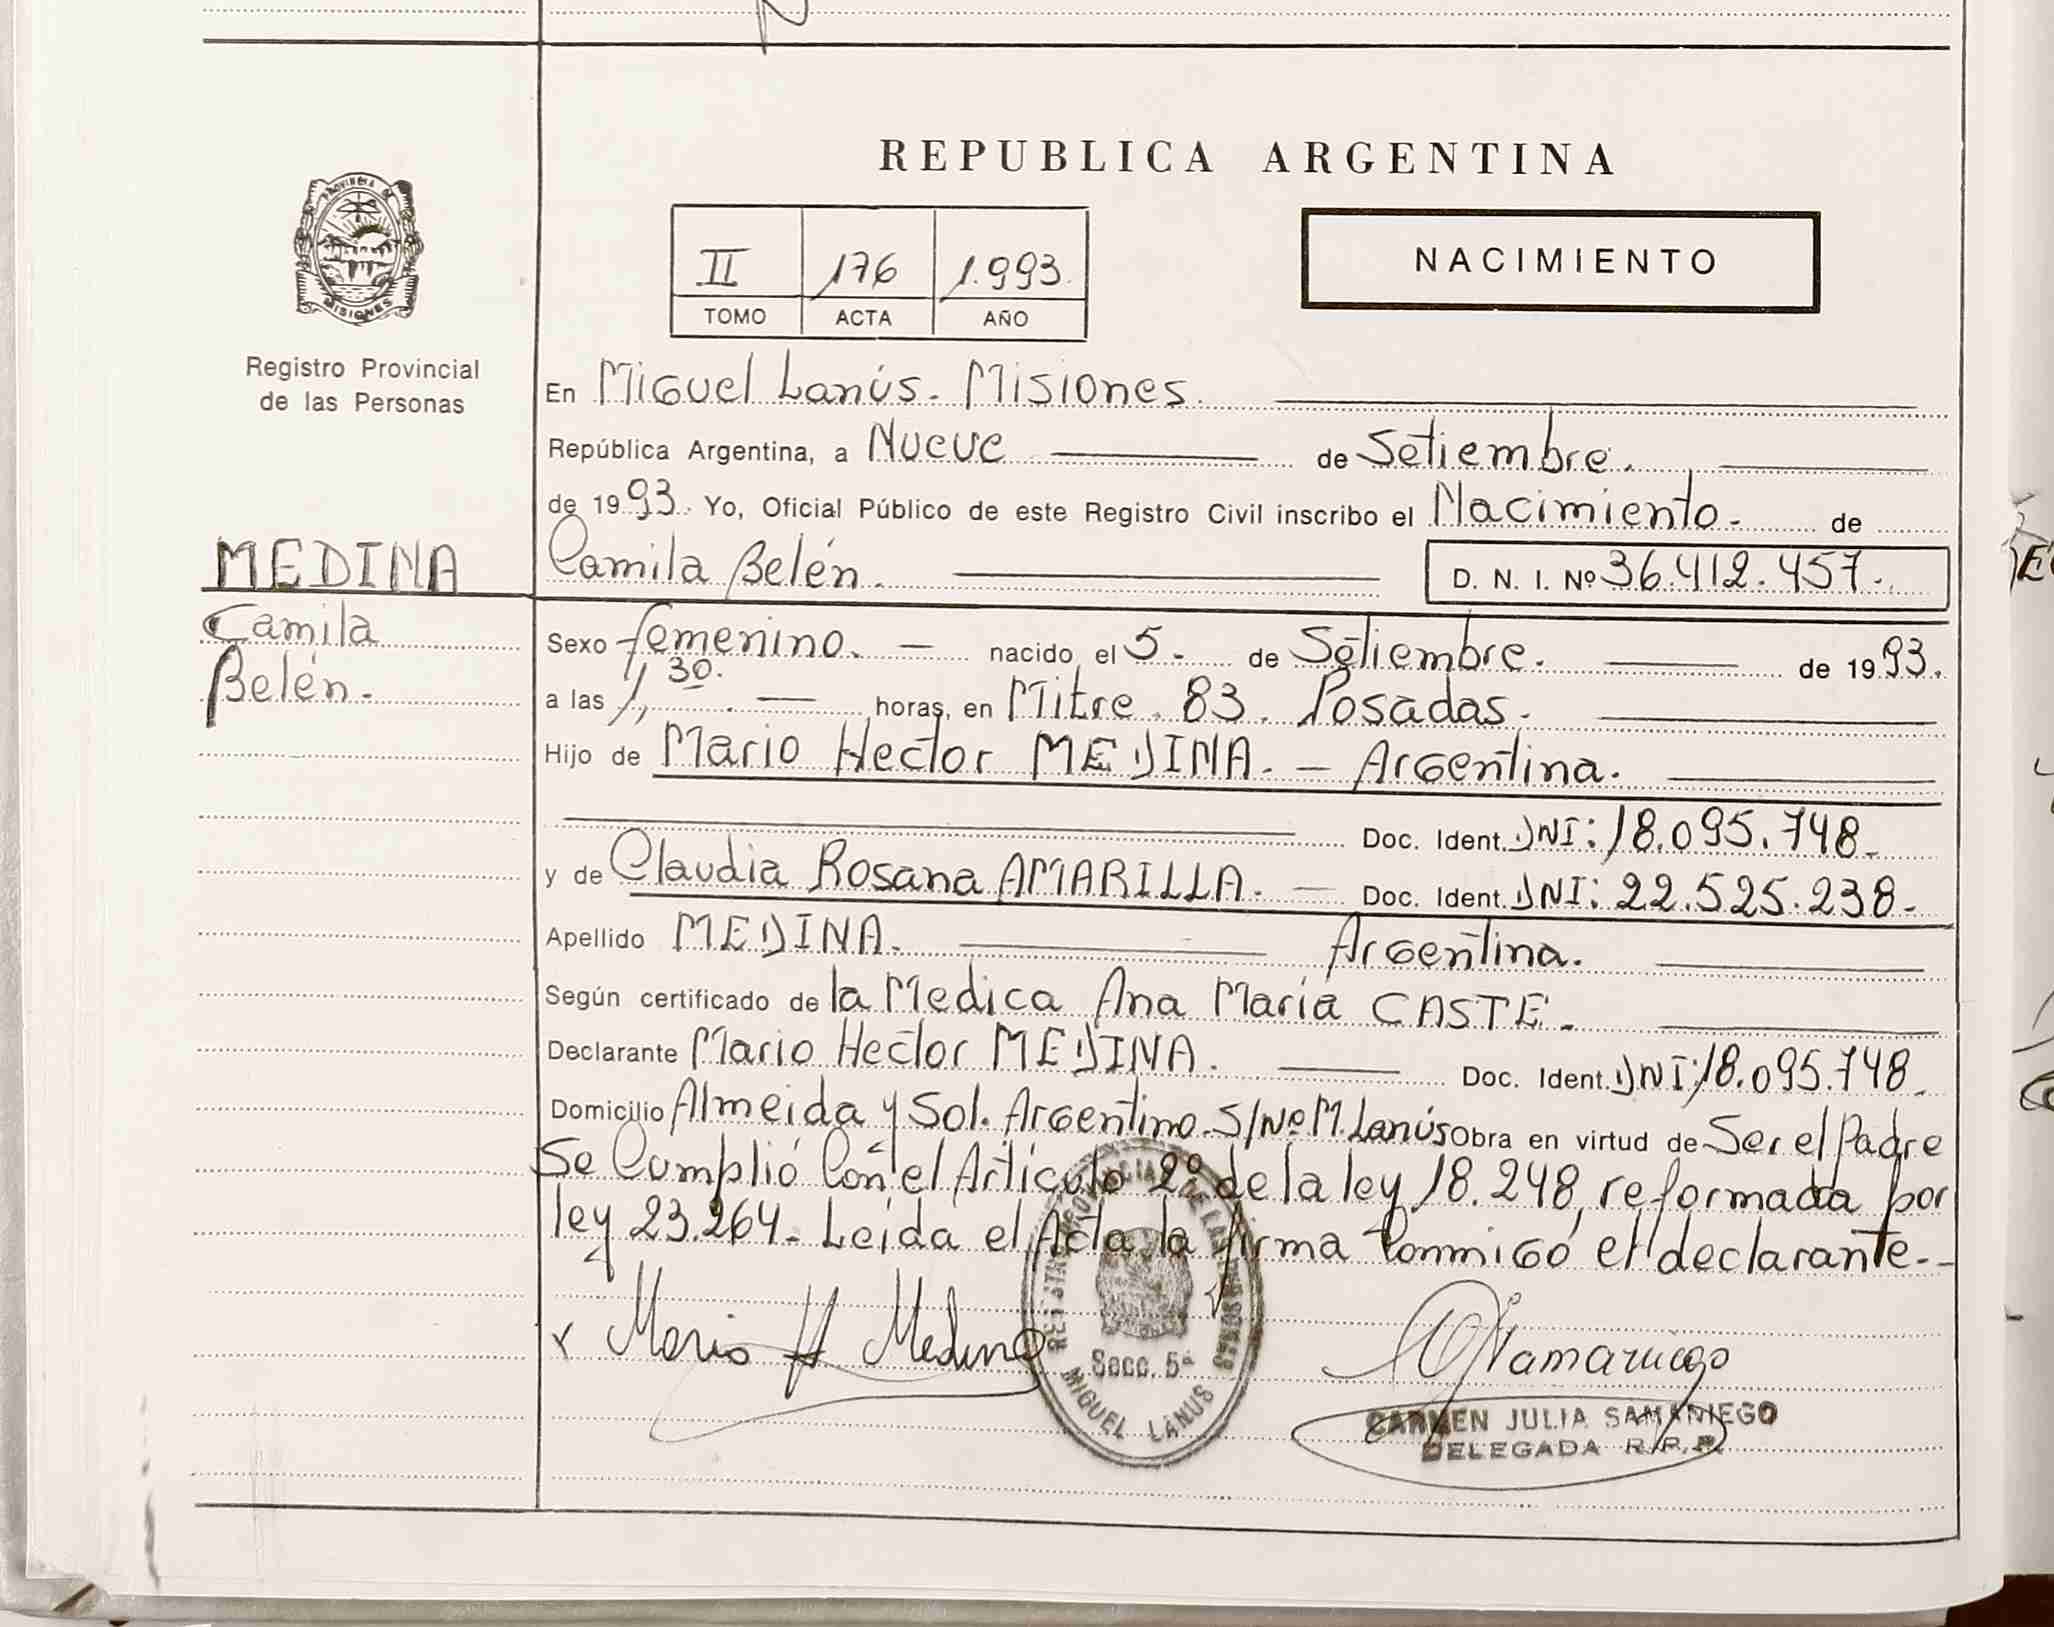 REPUBLICA ARGENTINA
PROVINCIA DE
MISIONES
Registro Provincial
de las Personas
NACIMIENTO
II 176 1.993.
TOMO ACTA AÑO
En Miguel Lanús. Misiones.
República Argentina, a Nueve de Setiembre.
de 1993. Yo, Oficial Público de este Registro Civil inscribo el Nacimiento. de
MEDINA
Camila Belén. D. N. I. Nº 36.412.457.
Camila
Belén.
Sexo femenino. nacido el 5. de Setiembre. de 1993.
a las 1,30. horas, en Mitre 83. Posadas.
Hijo de Mario Hector MEDINA. – Argentina.
Doc. Ident. DNI: 18.095.748.
y de Claudia Rosana AMARILLA. – Doc. Ident. DNI: 22.525.238.
Apellido MEDINA. Argentina.
Según certificado de la Medica Ana María CASTE.
Declarante Mario Hector MEDINA. Doc. Ident. DNI: 18.095.748.
Domicilio Almeida y Sol. Argentino. S/Nº M. Lanús Obra en virtud de Ser el Padre
Se Cumplió Con el Artículo 2º de la ley 18.248, reformada por
ley 23.264. Leida el Acta, la firma Conmigo el declarante.
x Mario H Medina
REGISTRO PROVINCIAL DE LAS PERSONAS
Secc. 5ª
MIGUEL LANUS
CARMEN JULIA SAMANIEGO
DELEGADA R.P.P.